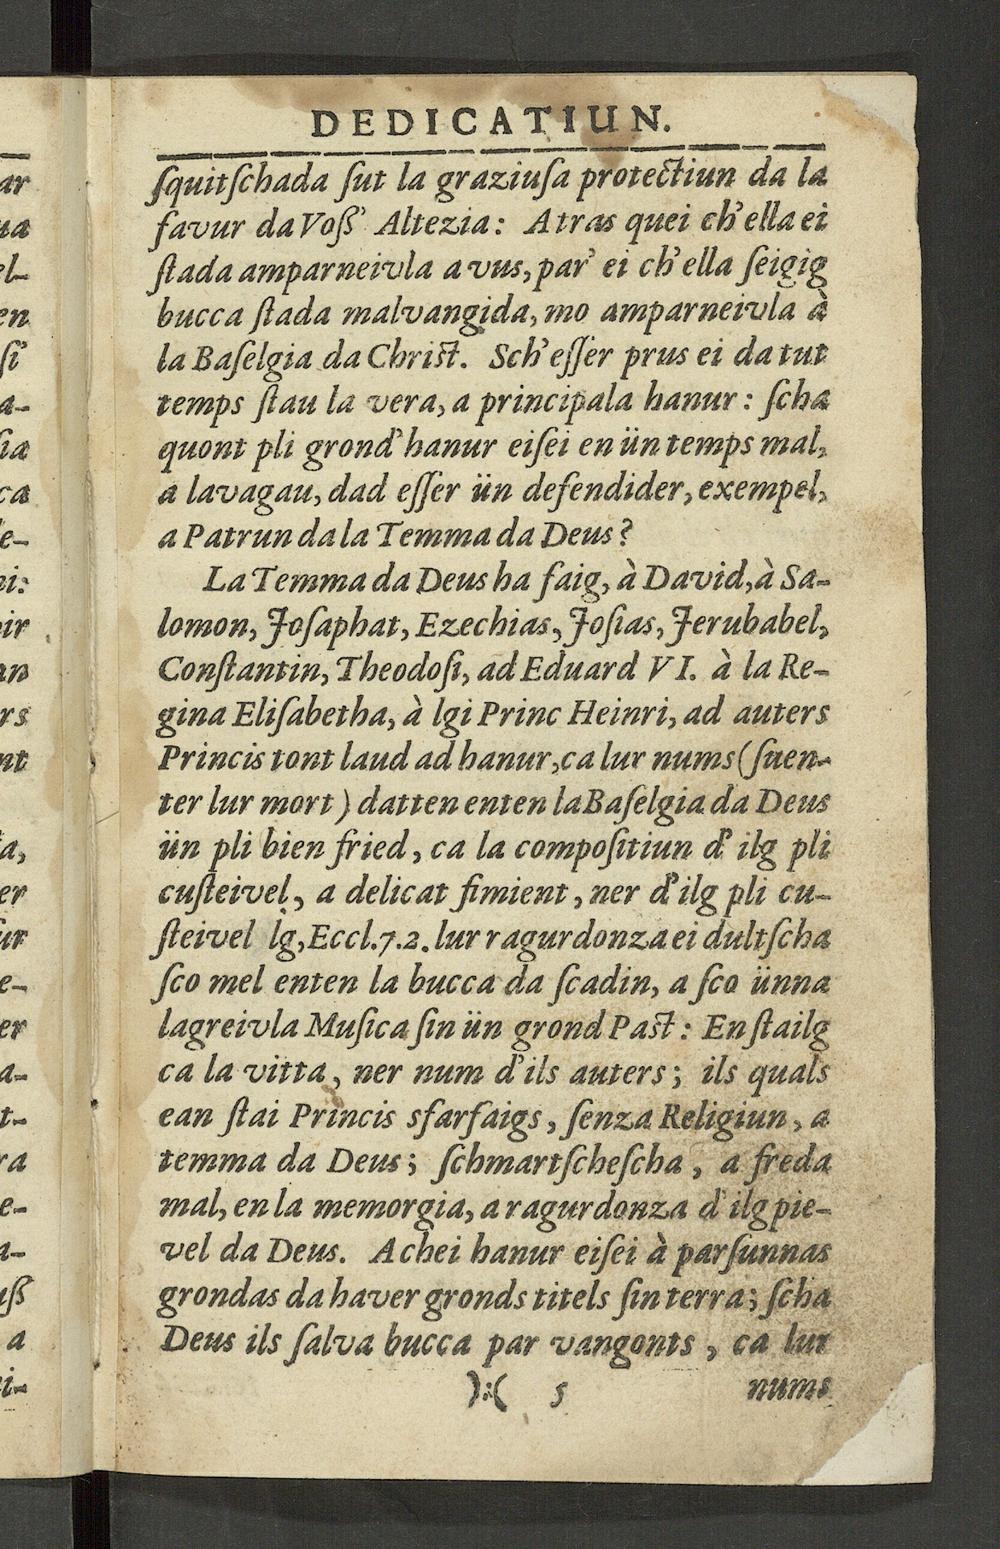 DEDICATIUN.
ſquitſchada ſut la graziuſa protectiun da la
favur da Voß' Altezia: A tras quei ch'ella ei
ſtada amparneivla a vus, par' ei ch'ella ſeigig
bucca ſtada malvangida, mo amparneivla à
la Baſelgia da Chriſt. Sch'eſſer prus ei da tut
temps ſtau la vera, a principala hanur: ſcha
quont pli grond' hanur eiſei en ün temps mal,
a lavagau, dad eſſer ün defendider, exempel,
a Patrun da la Temma da Deus?
La Temma da Deus ha faig, à David, à Sa-
lomon, Joſaphat, Ezechias, Joſias, Jerubabel,
Conſtantin, Theodoſi, ad Eduard VI. à la Re-
gina Eliſabetha, à lgi Princ Heinri, ad auters
Princis tont laud ad hanur, ca lur nums (ſuen-
ter lur mort) datten enten la Baſelgia da Deus
ün pli bien fried, ca la compoſitiun d' ilg pli
cuſteivel, a delicat fimient, ner d'ilg pli cu-
ſteivel lg, Eccl. 7. 2. lur ragurdonza ei dultſcha
ſco mel enten la bucca da ſcadin, a ſco ünna
lagreivla Muſica ſin ün grond Paſt: En ſtailg
ca la vitta, ner num d'ils auters; ils quals
ean ſtai Princis sfarfaigs, ſenza Religiun, a
temma da Deus; ſchmartſcheſcha, a freda
mal, en la memorgia, a ragurdonza d'ilg pie-
vel da Deus. A chei hanur eiſei à parſunnas
grondas da haver gronds titels ſin terra; ſcha
Deus ils ſalva bucca par vangonts, ca lur
):( 5 nums